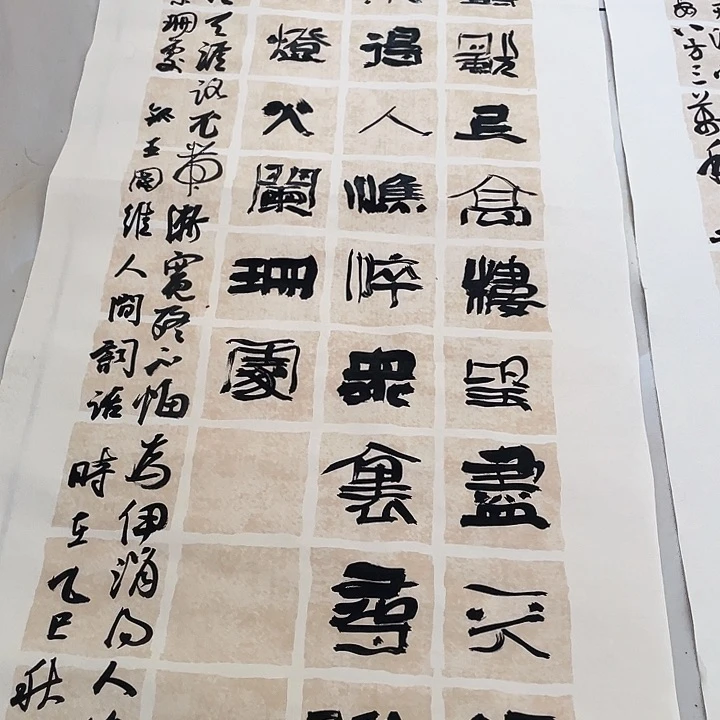 獨上高樓望盡天
得人憔悴眾裏尋
燈火闌珊處
天涯路衣帶漸寬終不悔為伊消得人
珊處錄王國維人間詞話時在乙巳秋